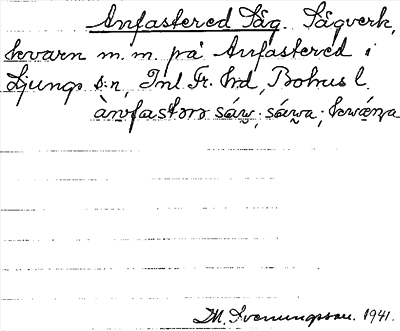 Anfastered Såg. Sågverk,
kvarn m.m. på Anfastered i
Ljungs s:n, Inl. Fr. hd, Bohusl.
ànvfastərə sáw̬; sáwa; kwáɳa
M. Svenungsson. 1941.